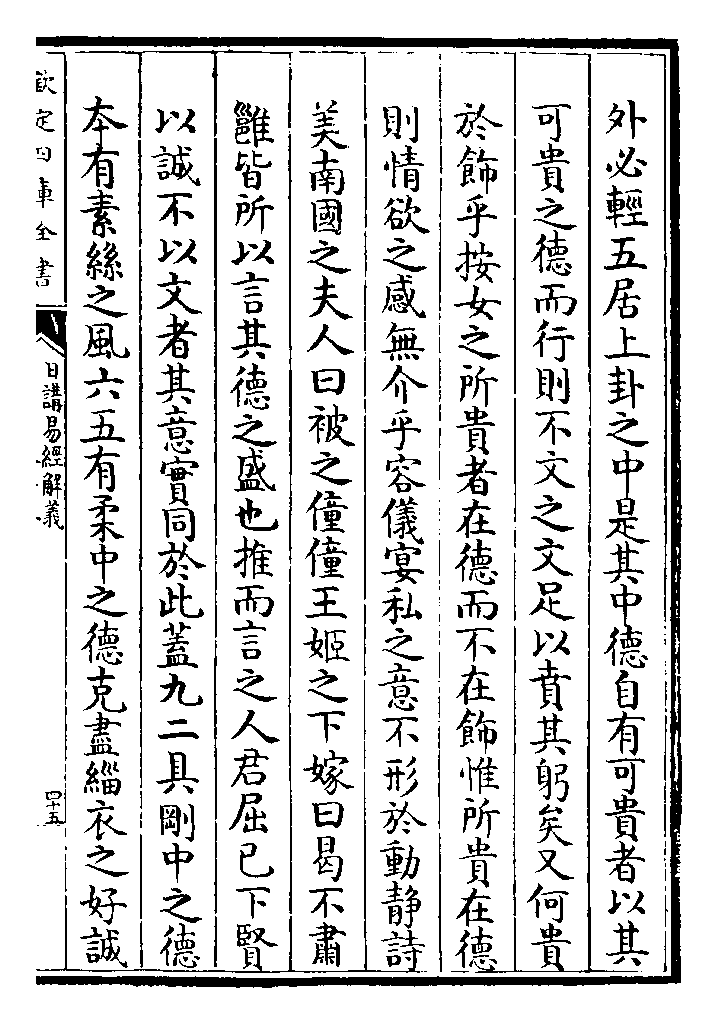 外必輕五居上卦之中是其中德自有可貴者以其
可貴之德而行則不文之文足以賁其躬矣又何貴
於飾乎按女之所貴者在德而不在飾惟所貴在德
則情欲之感無介乎容儀宴私之意不形於動静詩
美南國之夫人曰被之僮僮王姬之下嫁曰曷不肅
雝皆所以言其德之盛也推而言之人君屈已下賢
以誠不以文者其意實同於此蓋九二具剛中之德
本有素絲之風六五有柔中之德克盡緇衣之好誠
欽定四庫全書
日講易經解義
四十五